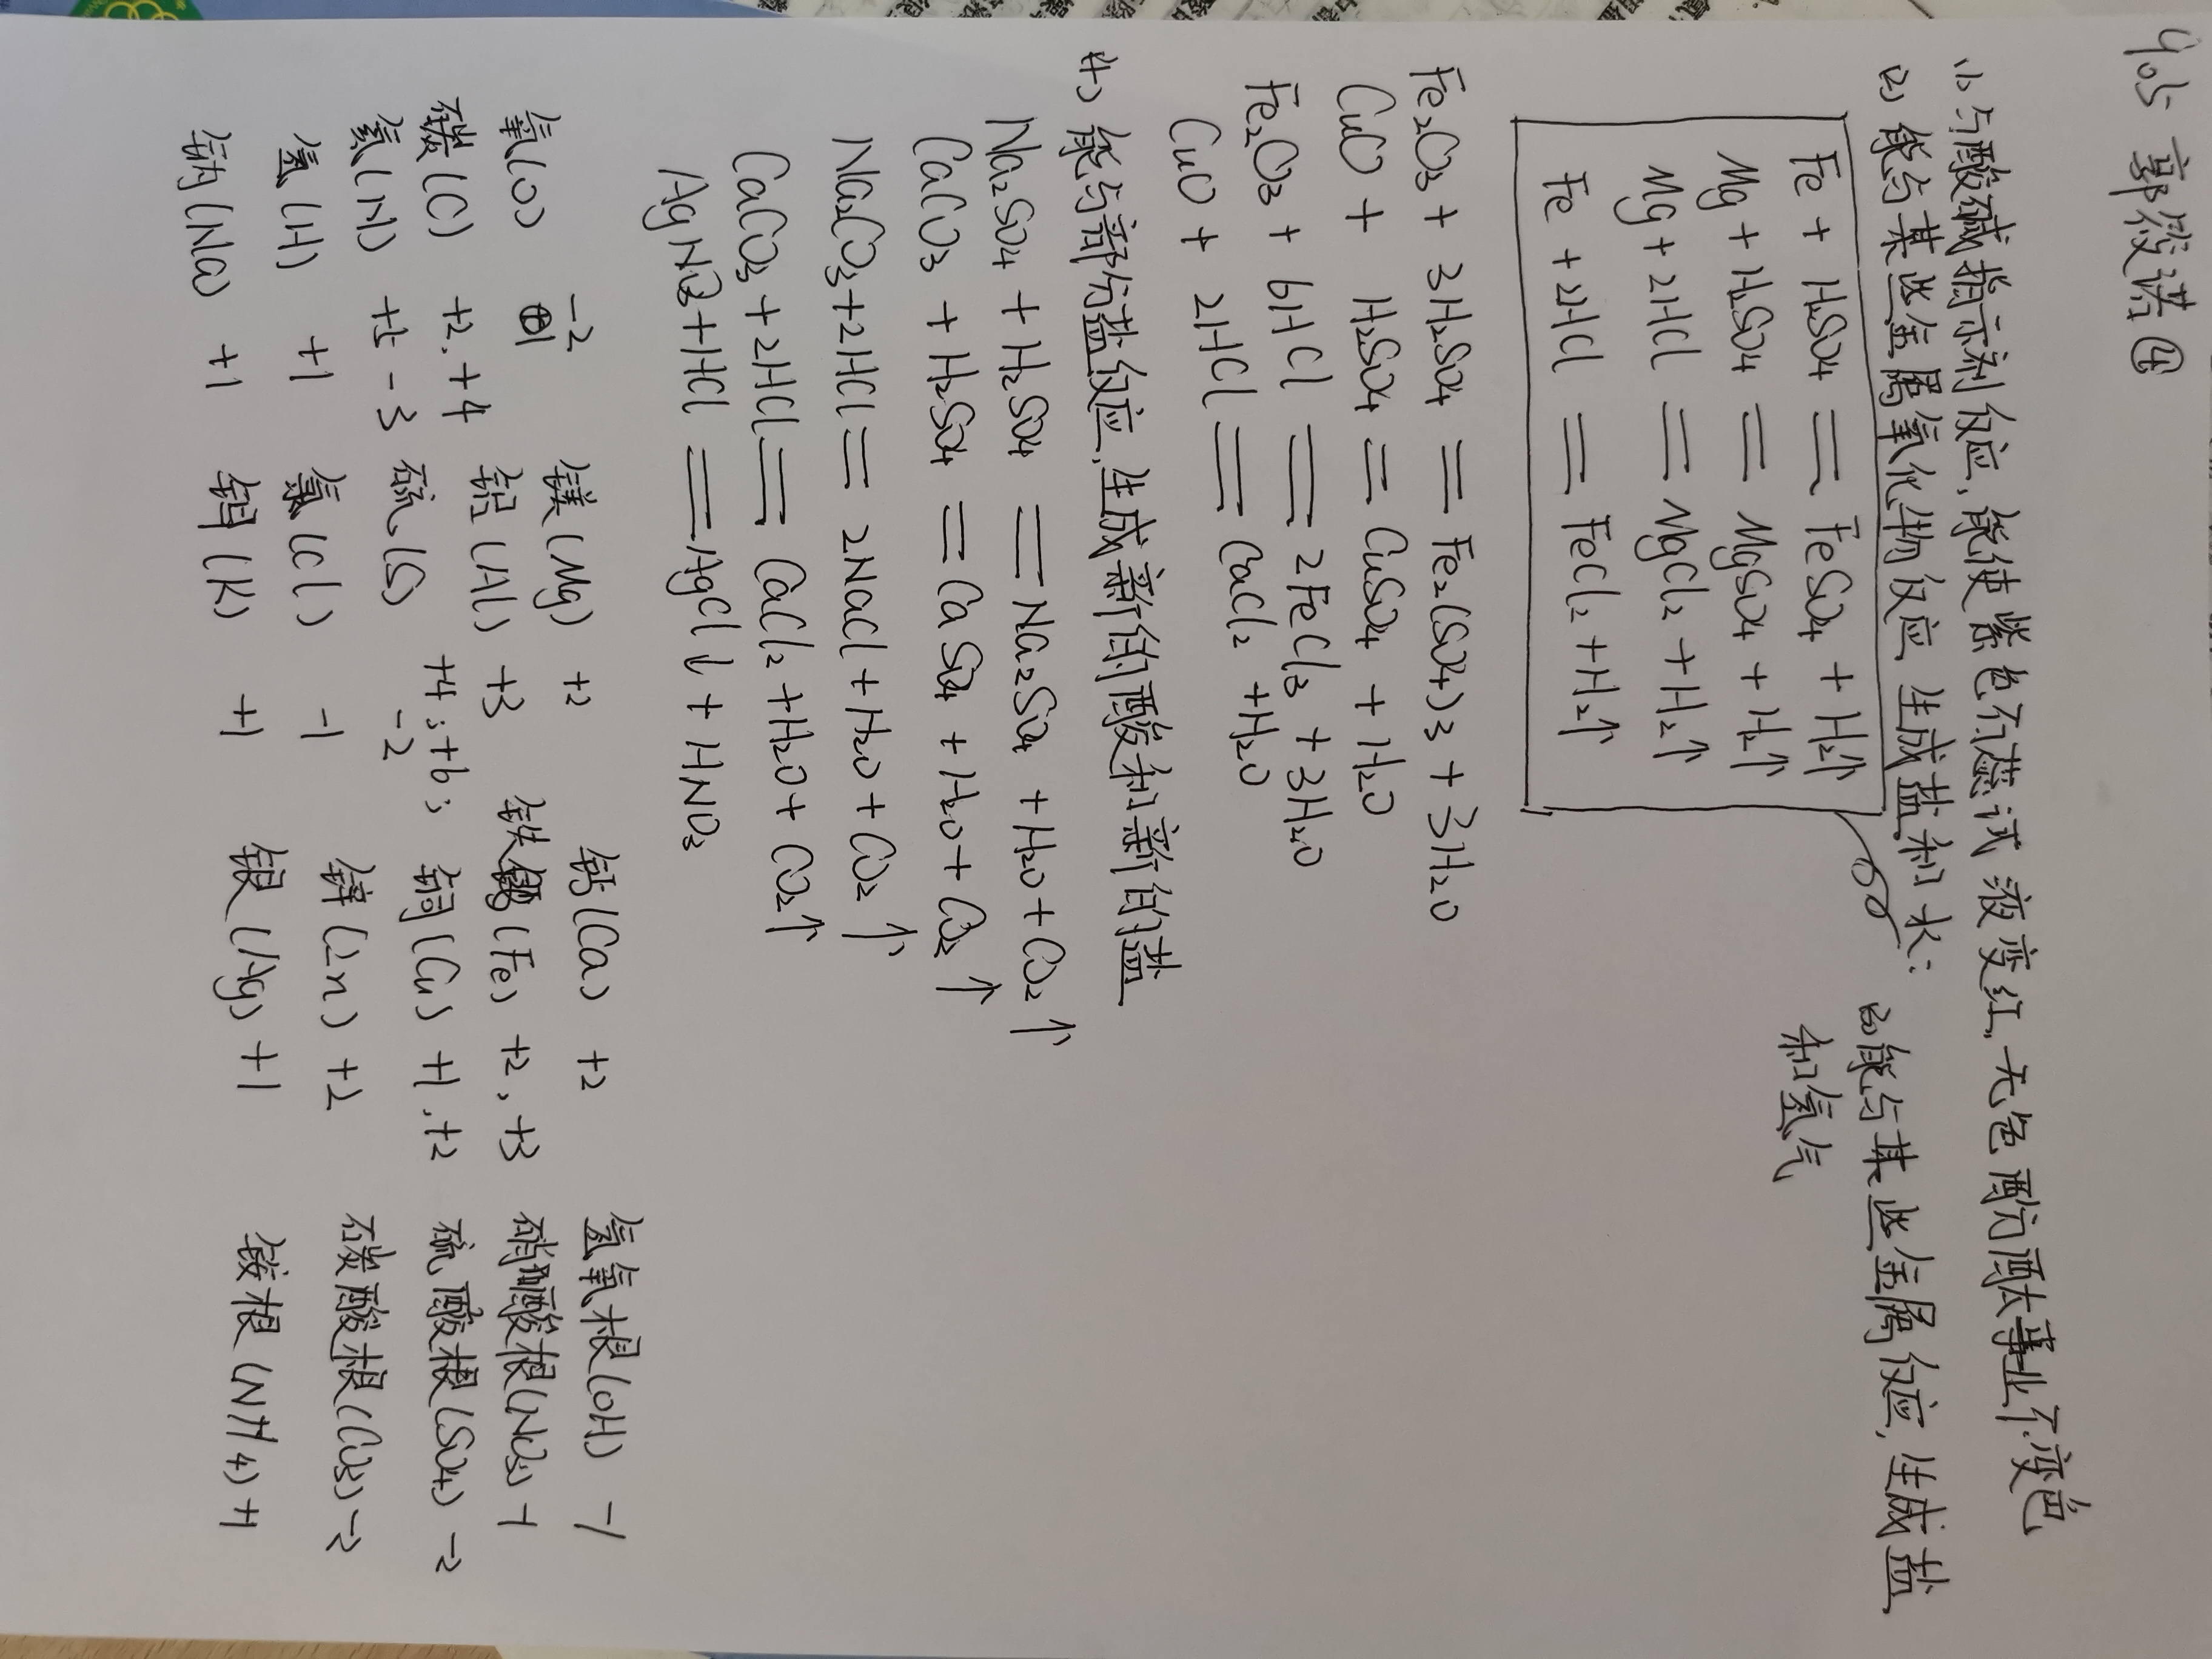 905 郭筱诺 ④
(1)与酸碱指示剂反应,能使紫色石蕊试液变红,无色酚酞事业不变色
(2)能与某些金属氧化物反应 生成盐和水:
(3)能与某些金属反应,生成盐
和氢气
Fe + H₂SO₄ = FeSO₄ + H₂↑
Mg + H₂SO₄ = MgSO₄ + H₂↑
Mg + 2HCl = MgCl₂ + H₂↑
Fe + 2HCl = FeCl₂ + H₂↑
Fe₂O₃ + 3H₂SO₄ = Fe₂(SO₄)₃ + 3H₂O
CuO + H₂SO₄ = CuSO₄ + H₂O
Fe₂O₃ + 6HCl = 2FeCl₃ + 3H₂O
CuO + 2HCl = CaCl₂ + H₂O
(4)能与部份盐反应,生成新的酸和新的盐
Na₂SO₄ + H₂SO₄ = Na₂SO₄ + H₂O + CO₂↑
CaCO₃ + H₂SO₄ = CaSO₄ + H₂O + CO₂↑
Na₂CO₃ + 2HCl = 2NaCl + H₂O + CO₂↑
CaCO₃ + 2HCl = CaCl₂ + H₂O + CO₂↑
AgNO₃ + HCl = AgCl↓ + HNO₃
氧(O) -2 镁(Mg) +2 钙(Ca) +2 氢氧根(OH) -1
碳(C) +2,+4 铝(Al) +3 铁(Fe) +2,+3 硝酸根(NO₃) -1
氮(N) +5 -3 硫(S) +4;+6;-2 铜(Cu) +1,+2 硫酸根(SO₄) -2
氢(H) +1 氯(Cl) -1 锌(Zn) +2 碳酸根(CO₃) -2
钠(Na) +1 钾(K) +1 银(Ag) +1 铵根(NH4) +1